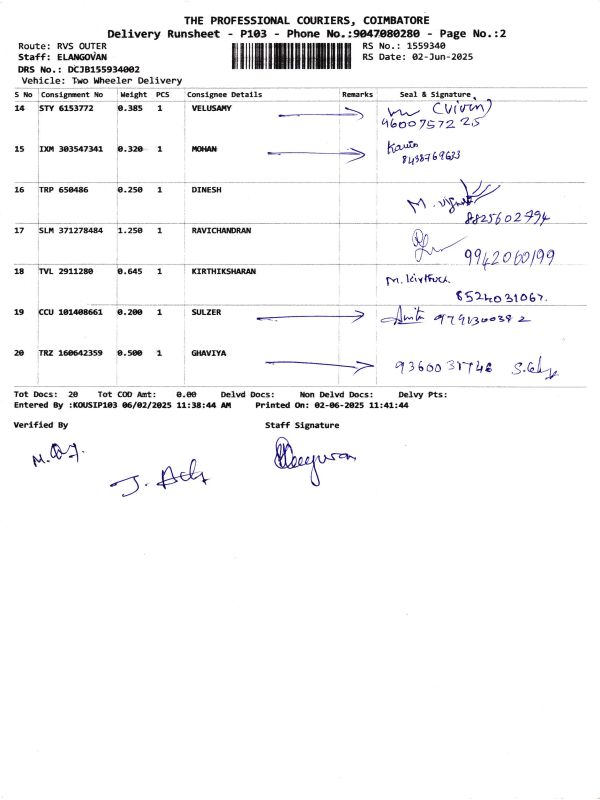 THE PROFESSIONAL COURIERS, COIMBATORE
Delivery Runsheet - P103 - Phone No.:9047080280 - Page No.:2
Route: RVS OUTER RS No.: 1559340
Staff: ELANGOVAN RS Date: 02-Jun-2025
DRS No.: DCJB155934002
Vehicle: Two Wheeler Delivery
S No Consignment No Weight PCS Consignee Details Remarks Seal & Signature
14 STY 6153772 0.385 1 VELUSAMY (Vivin)
9600757225
15 IXM 303547341 0.320 1 MOHAN Kavin
8438769633
16 TRP 650486 0.250 1 DINESH M.
8825602994
17 SLM 371278484 1.250 1 RAVICHANDRAN 9942060199
18 TVL 2911280 0.645 1 KIRTHIKSHARAN M.
8524031067.
19 CCU 101408661 0.200 1 SULZER
20 TRZ 160642359 0.500 1 GHAVIYA
Tot Docs: 20 Tot COD Amt: 0.00 Delvd Docs: Non Delvd Docs: Delvy Pts:
Entered By :KOUSIP103 06/02/2025 11:38:44 AM Printed On: 02-06-2025 11:41:44
Verified By Staff Signature